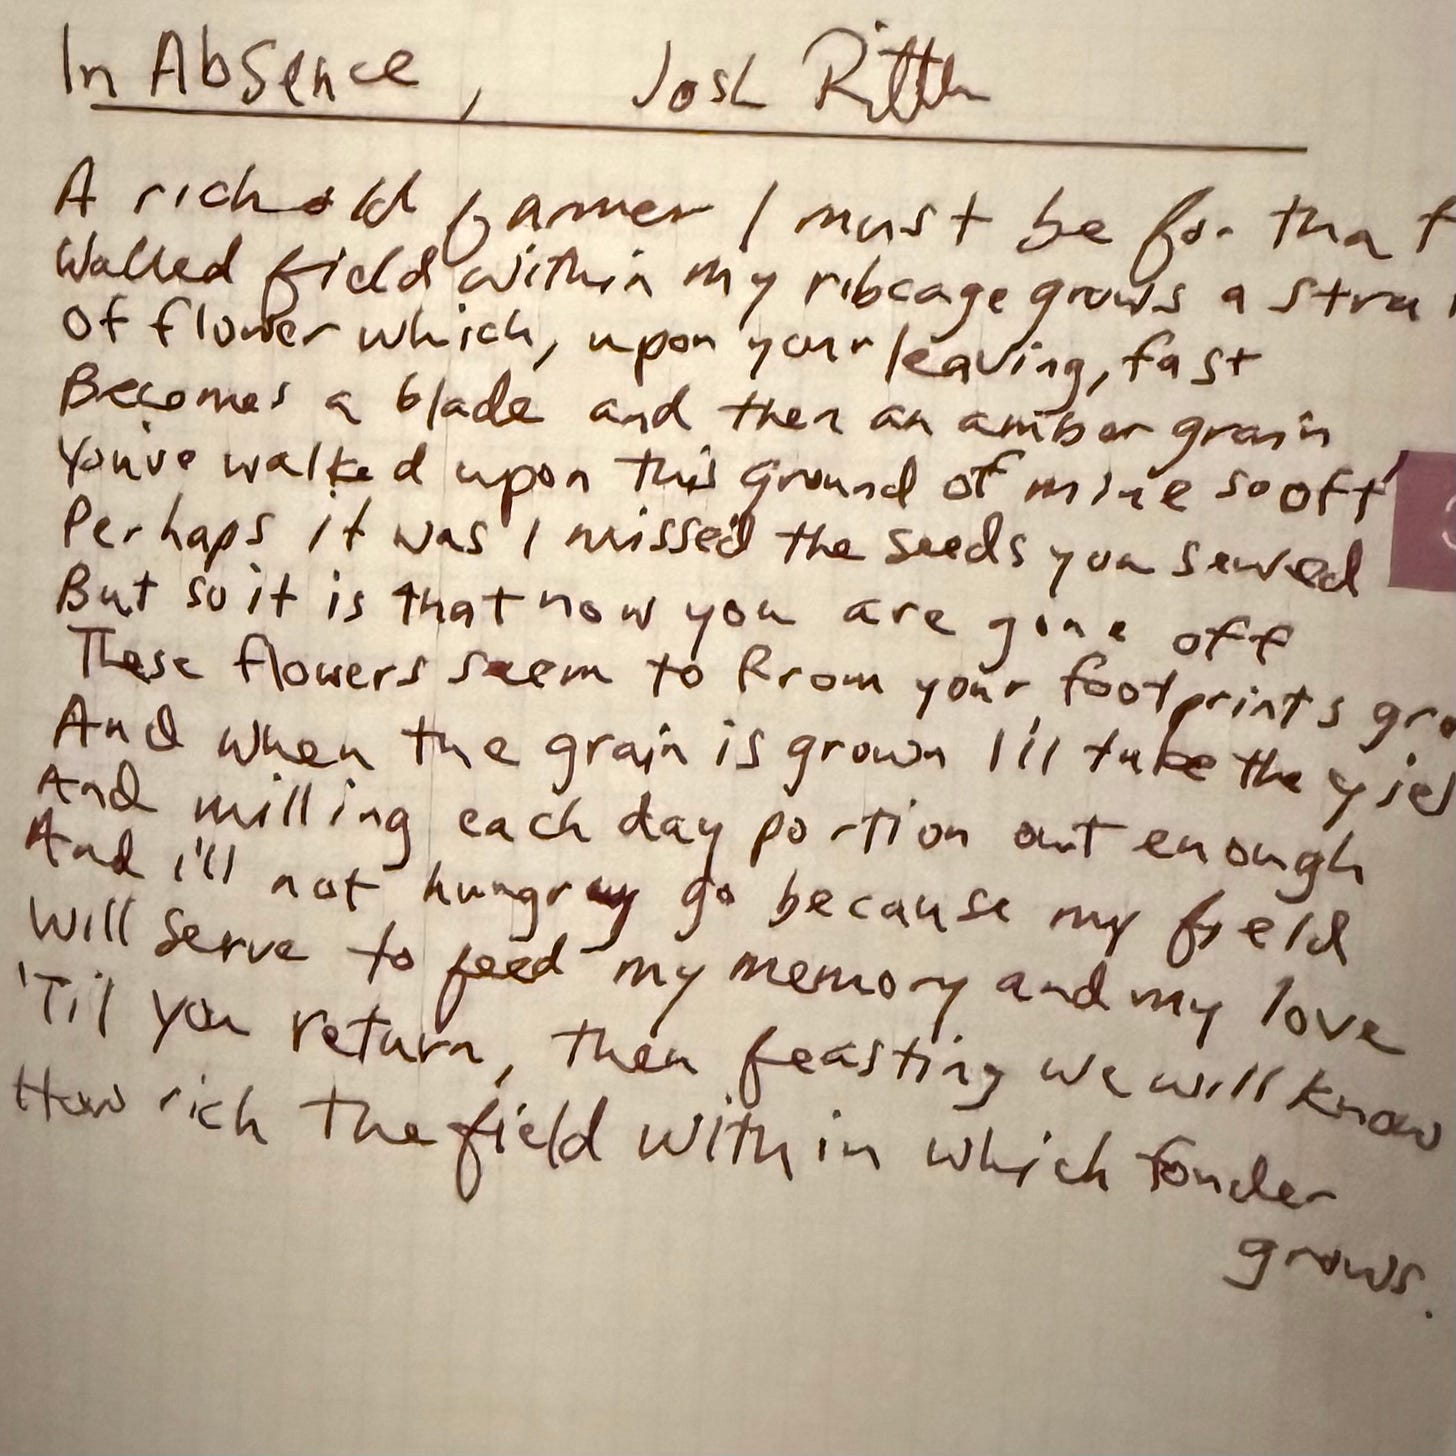 In Absence, Josh Ritter
A rich old farmer I must be for in that
Walled field within my ribcage grows a
Of flower which, upon your leaving, fast
Becomes a blade and then an amber grain
You've walked upon this ground of mine so oft
Perhaps it was I missed the seeds you sewed
But so it is that now you are gone off
These flowers seem to from your footprints
And when the grain is grown I'll take the
And milling each day portion out enough
And i'll not hungry go because my field
Will serve to feed my memory and my love
'Til you return, then feasting we will know
How rich the field within which fonder
grows.